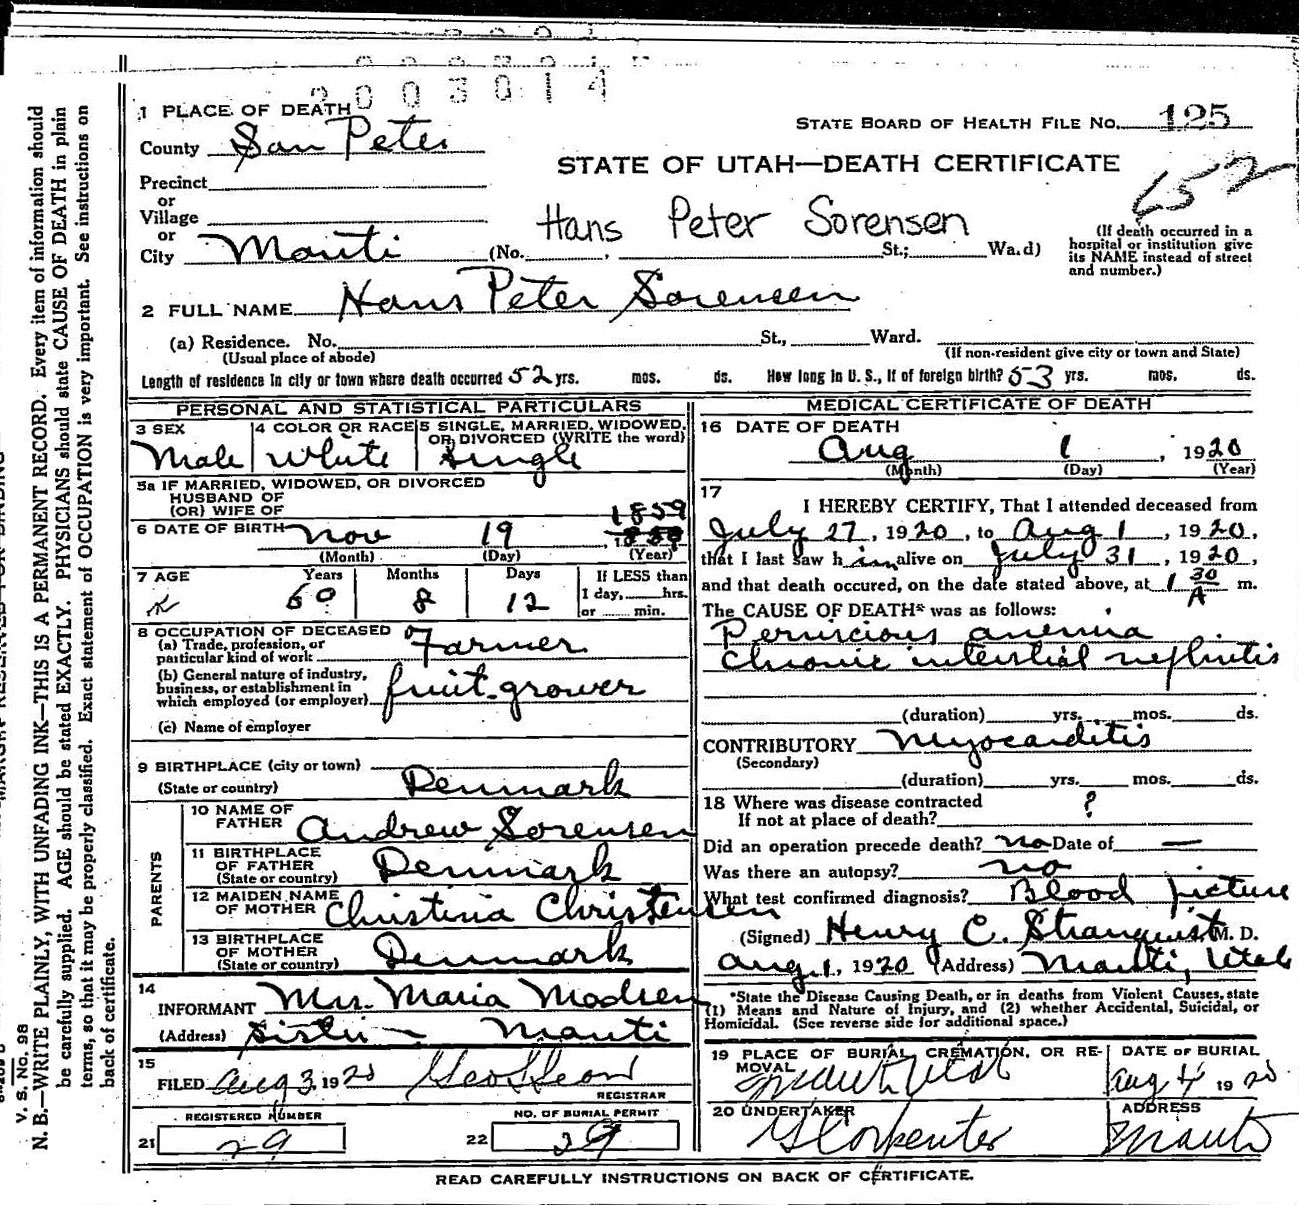 2003014
1 PLACE OF DEATH
STATE BOARD OF HEALTH FILE NO. 125
County San Peter
STATE OF UTAH—DEATH CERTIFICATE
652
Precinct
or
Village
or
Hans Peter Sorensen
City Manti (No. , St.; Wa.d)
(If death occurred in a
hospital or institution give
its NAME instead of street
and number.)
2 FULL NAME Hans Peter Sorensen
(a) Residence. No. St., Ward.
(Usual place of abode) (If non-resident give city or town and State)
Length of residence in city or town where death occurred 52 yrs. mos. ds. How long in U. S., if of foreign birth? 53 yrs. mos. ds.
PERSONAL AND STATISTICAL PARTICULARS
3 SEX Male
4 COLOR OR RACE White
5 SINGLE, MARRIED, WIDOWED,
OR DIVORCED (WRITE the word)
Single
5a IF MARRIED, WIDOWED, OR DIVORCED
HUSBAND OF
(OR) WIFE OF
1859
6 DATE OF BIRTH Nov 19
(Month) (Day) (Year)
7 AGE Years Months Days If LESS than
60 8 12 1 day, hrs.
or min.
8 OCCUPATION OF DECEASED
(a) Trade, profession, or
particular kind of work Farmer
(b) General nature of industry,
business, or establishment in
which employed (or employer) fruit-grower
(c) Name of employer
9 BIRTHPLACE (city or town)
(State or country) Denmark
PARENTS
10 NAME OF
FATHER Andrew Sorensen
11 BIRTHPLACE
OF FATHER
(State or country) Denmark
12 MAIDEN NAME
OF MOTHER Christina Christensen
13 BIRTHPLACE
OF MOTHER
(State or country) Denmark
14
INFORMANT Mrs. Maria Madsen
(Address) Sister — Manti
15
FILED Aug 3, 1920
REGISTRAR
REGISTERED NUMBER
21 29
NO. OF BURIAL PERMIT
22 29
MEDICAL CERTIFICATE OF DEATH
16 DATE OF DEATH
Aug 1, 1920
(Month) (Day) (Year)
17
I HEREBY CERTIFY, That I attended deceased from
July 27, 1920, to Aug 1, 1920,
that I last saw him alive on July 31, 1920,
and that death occured, on the date stated above, at 1 30 A m.
The CAUSE OF DEATH* was as follows:
Pernicious anemia
Chronic interstial nephritis
(duration) yrs. mos. ds.
CONTRIBUTORY Myocarditis
(Secondary)
(duration) yrs. mos. ds.
18 Where was disease contracted
If not at place of death? ?
Did an operation precede death? no Date of —
Was there an autopsy? no
What test confirmed diagnosis? Blood picture
(Signed) Henry C. Stranquist M. D.
Aug. 1, 1920 (Address) Manti, Utah
*State the Disease Causing Death, or in deaths from Violent Causes, state
(1) Means and Nature of Injury, and (2) whether Accidental, Suicidal, or
Homicidal. (See reverse side for additional space.)
19 PLACE OF BURIAL, CREMATION, OR RE-
MOVAL
Manti Utah
DATE OF BURIAL
Aug 4 1920
20 UNDERTAKER
Carpenter
ADDRESS
Manti
READ CAREFULLY INSTRUCTIONS ON BACK OF CERTIFICATE.
V. S. No. 98
N. B.—WRITE PLAINLY, WITH UNFADING INK—THIS IS A PERMANENT RECORD. Every item of information should
be carefully supplied. AGE should be stated EXACTLY. PHYSICIANS should state CAUSE OF DEATH in plain
terms, so that it may be properly classified. Exact statement of OCCUPATION is very important. See instructions on
back of certificate.